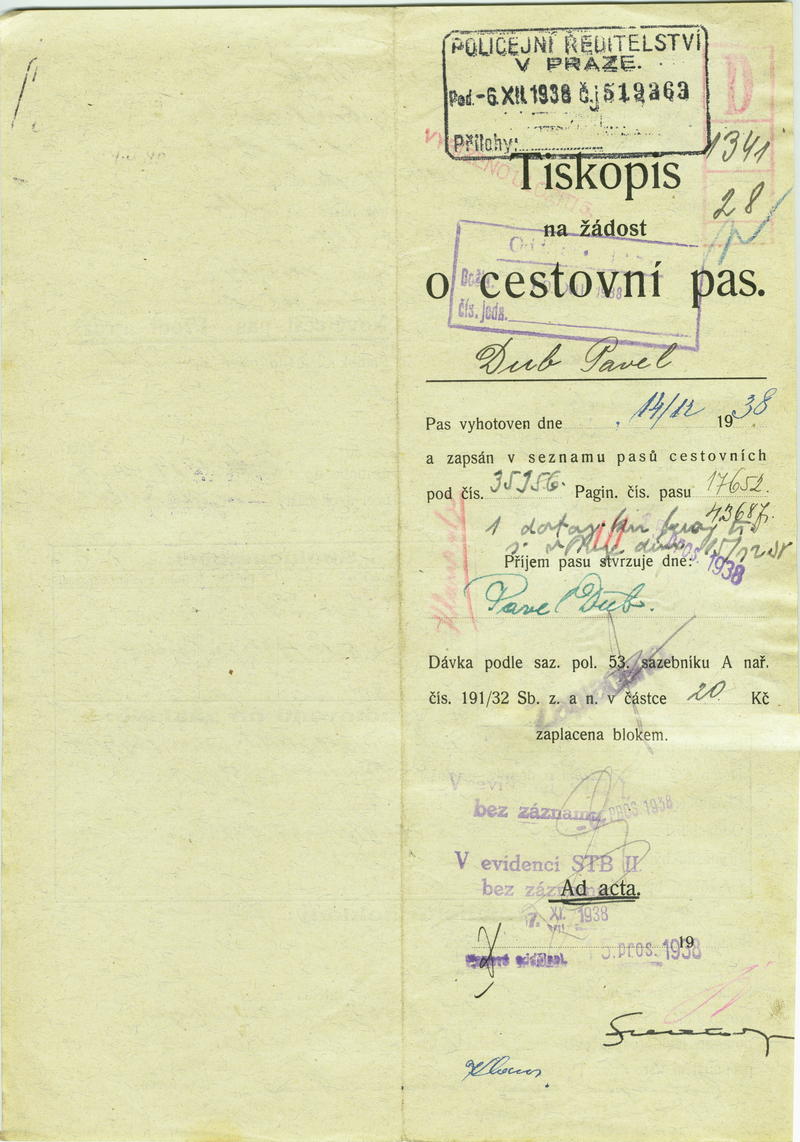 POLICEJNÍ ŘEDITELSTVÍ
V PRAZE.
Pod. -6.XII.1938 Č.j 519363
Přílohy:
D
1341
28
Tiskopis
na žádost
o cestovní pas.
Došlo 1938
čís. jedn.
Dub Pavel
Pas vyhotoven dne 14/12 1938
a zapsán v seznamu pasů cestovních
pod čís. 35956. Pagin. čís. pasu 17652.
43687
1
15/12 38
Příjem pasu stvrzuje dne:
pros. 1938
Pavel Dub.
Dávka podle saz. pol. 53. sazebníku A nař.
čís. 191/32 Sb. z. a n. v částce 20 Kč
zaplacena blokem.
V
bez záznamu PROS. 1938
V evidenci STB II
bez záznamu
Ad acta.
7. XII. 1938
19
5. pros. 1938